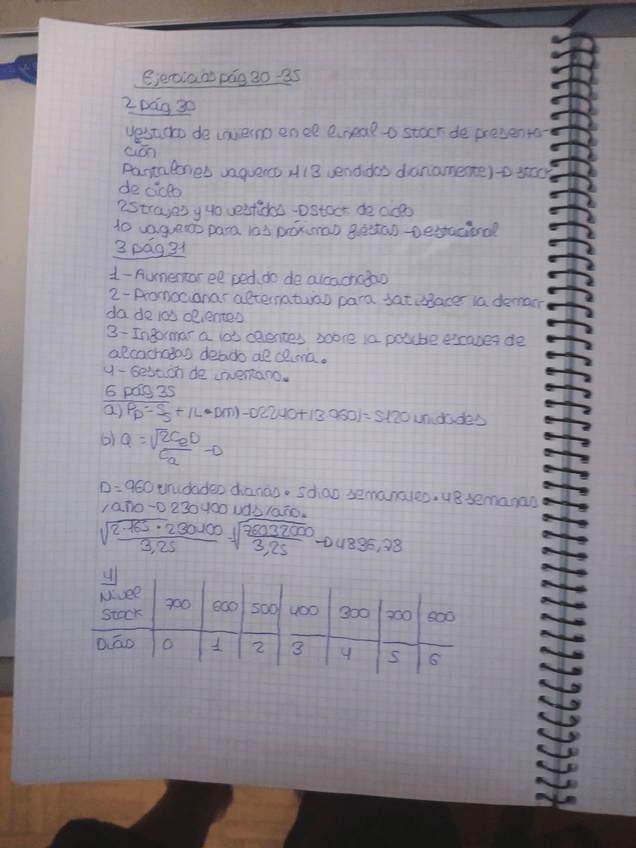 Ejercicios pág 30-35
2 pág 30
Vestido de invierno en el lineal → stock de presenta-
ción
Pantalones vaqueros 4 (3 vendidos diariamente) → stock
de ciclo
25 trajes y 40 vestidos → stock de ciclo
10 vaqueros para las próximas fiestas → estacional
3 pág 31
1 - Aumentar el pedido de alcachofas
2 - Promocionar alternativas para satisfacer la deman-
da de los clientes
3 - Informar a los clientes sobre la posible escasez de
alcachofas debido al clima.
4 - Gestión de inventario.
6 pág 35
a) Pp = Ss + (L · Dm) → 2240 + (3 · 960) = 5120 unidades
b) Q = √2CeD / Ca →
D = 960 unidades diarias · 5 días semanales · 48 semanas
/año → 230400 uds/año.
√2·765·230400 / 3,25 = √76032000 / 3,25 → 4836,78
4)
Nivel Stock | 700 | 600 | 500 | 400 | 300 | 700 | 600
Días | 0 | 1 | 2 | 3 | 4 | 5 | 6